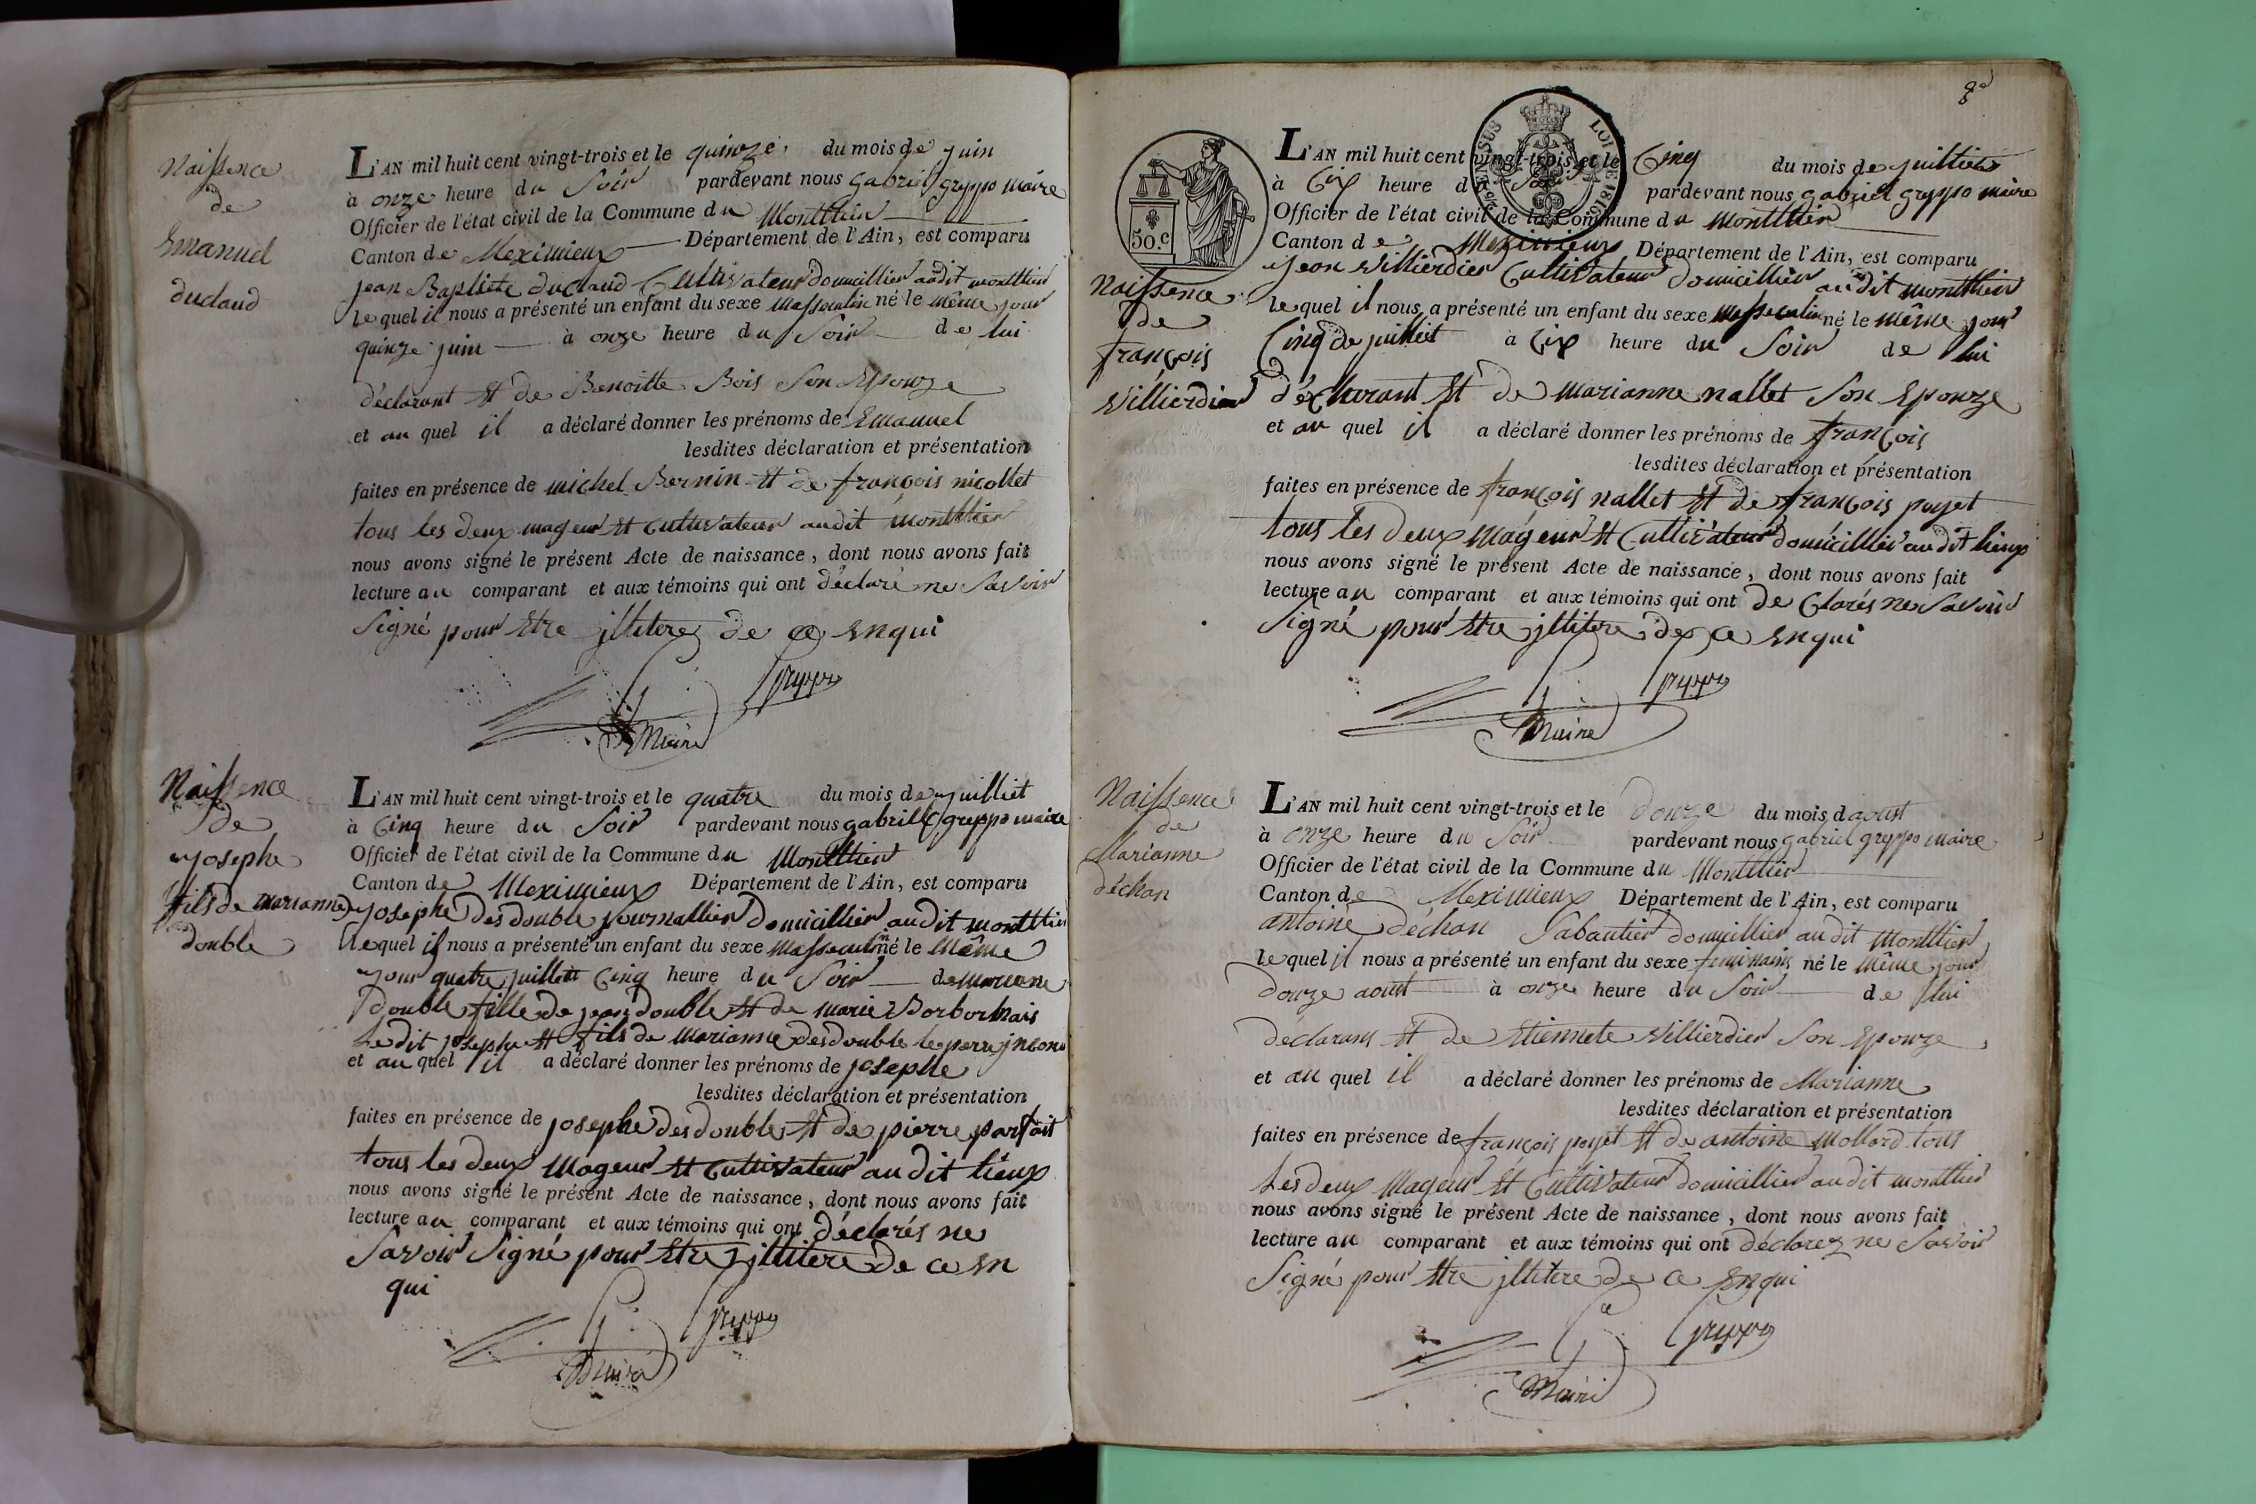 Naissence
de
Emanuel
duclaud
L'AN mil huit cent vingt-trois et le quinze du mois de juin
à onze heure du Soir pardevant nous gabriel greppo maire
Officier de l'état civil de la Commune du Montthier
Canton de Meximieux Département de l'Ain, est comparu
jean Baptiste duclaud Cultivateur domicillier audit montthier
le quel il nous a présenté un enfant du sexe massculin né le même jour
quinze juin à onze heure du Soir de lui
déclarant Et de Benoitte Bois Son Epouze
et au quel il a déclaré donner les prénoms de Emanuel
lesdites déclaration et présentation
faites en présence de michel Bernin Et de françois nicollet
tous les deux mageur Et Cultivateur audit montthier
nous avons signé le présent Acte de naissance, dont nous avons fait
lecture au comparant et aux témoins qui ont déclaré ne Savoir
Signé pour Etre jlliterez de ce Enqui
Greppo
Maire
Naissence
de
josephe
fils de marianne
double
L'AN mil huit cent vingt-trois et le quatre du mois de juilliet
à Cinq heure du Soir pardevant nous gabriel greppo maire
Officier de l'état civil de la Commune du Montthier
Canton de Meximieux Département de l'Ain, est comparu
josephe des double journallier domicillier audit montthier
le quel il nous a présenté un enfant du sexe massculin né le même
jour quatre juilliet Cinq heure du Soir de mariane
double fille de jean double Et de marie Borbornais
Le dit josephe Et fils de marianne des double le perre jnconu
et au quel il a déclaré donner les prénoms de josephe
lesdites déclaration et présentation
faites en présence de josephe des double Et de pierre parfait
tous les deux Mageur Et Cultivateur au dit lieux
nous avons signé le présent Acte de naissance, dont nous avons fait
lecture au comparant et aux témoins qui ont déclarés ne
Savoir Signé pour Etre jllitere de ce En
qui
Greppo
Maire
8e
50.c
LOI DE 1816
L'AN mil huit cent vingt-trois et le Cinq du mois de juilliet
à Six heure du Soir pardevant nous gabriel greppo maire
Officier de l'état civil de la Commune du Montthier
Canton de Meximieux Département de l'Ain, est comparu
jean Villierdier Cultivateur domicillier au dit montthier
le quel il nous a présenté un enfant du sexe massculin né le même jour
Cinq de juilliet à Six heure du Soir de lui
Naissence
de
françois
Villierdier
décharant Et de marianne nallet Son Epouze
et au quel il a déclaré donner les prénoms de françois
lesdites déclaration et présentation
faites en présence de françois nallet Et de françois poyet
tous les deux Mageur Et Cultivateur domicillier au dit lieux
nous avons signé le présent Acte de naissance, dont nous avons fait
lecture au comparant et aux témoins qui ont de Clarés ne Savoir
Signé pour Etre jllitere de ce Enqui
Greppo
Maire
Naissence
de
Marianne
déchan
L'AN mil huit cent vingt-trois et le douze du mois d aoust
à onze heure du Soir pardevant nous gabriel greppo maire
Officier de l'état civil de la Commune du Montthier
Canton de Meximieux Département de l'Ain, est comparu
antoine déchan Sabautier domicillier au dit Montthier
le quel il nous a présenté un enfant du sexe feminains né le même jour
douze aoust à onze heure du Soir de lui
déclarans Et de Etiennete Villierdier Son Epouze
et au quel il a déclaré donner les prénoms de Marianne
lesdites déclaration et présentation
faites en présence de françois poyet Et de antoine Mollard tous
Les deux Mageur Et Cultivateur domicillier au dit montthier
nous avons signé le présent Acte de naissance, dont nous avons fait
lecture au comparant et aux témoins qui ont déclarez ne Savoir
Signé pour Etre jllitere de ce Enqui
Greppo
Maire